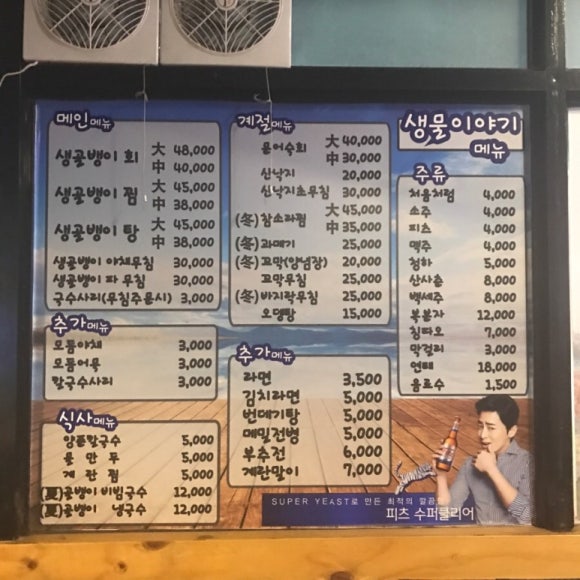 메인메뉴
생골뱅이 회 大 48,000
中 40,000
생골뱅이 찜 大 45,000
中 38,000
생골뱅이 탕 大 45,000
中 38,000
생골뱅이 야채무침 30,000
생골뱅이 파 무침 30,000
국수사리(무침주문시) 3,000
추가메뉴
모듬야채 3,000
모듬어묵 3,000
칼국수사리 3,000
식사메뉴
양푼칼국수 5,000
물 만 두 5,000
계 란 찜 5,000
(夏)골뱅이 비빔국수 12,000
(夏)골뱅이 냉국수 12,000
계절메뉴
문어숙회 大 40,000
中 30,000
산낙지 20,000
산낙지초무침 30,000
(冬)참소라찜 大 45,000
中 35,000
(冬)과메기 25,000
(冬)꼬막(양념장) 20,000
꼬막무침 25,000
(冬)바지락무침 25,000
오뎅탕 15,000
추가메뉴
라면 3,500
김치라면 5,000
번데기탕 5,000
메밀전병 5,000
부추전 6,000
계란말이 7,000
생물이야기
메뉴
주류
처음처럼 4,000
소주 4,000
피츠 4,000
맥주 4,000
청하 5,000
산사춘 8,000
백세주 8,000
복분자 12,000
칭따오 7,000
막걸리 3,000
연태 18,000
음료수 1,500
SUPER YEAST로 만든 최적의 깔끔함
피츠 수퍼클리어